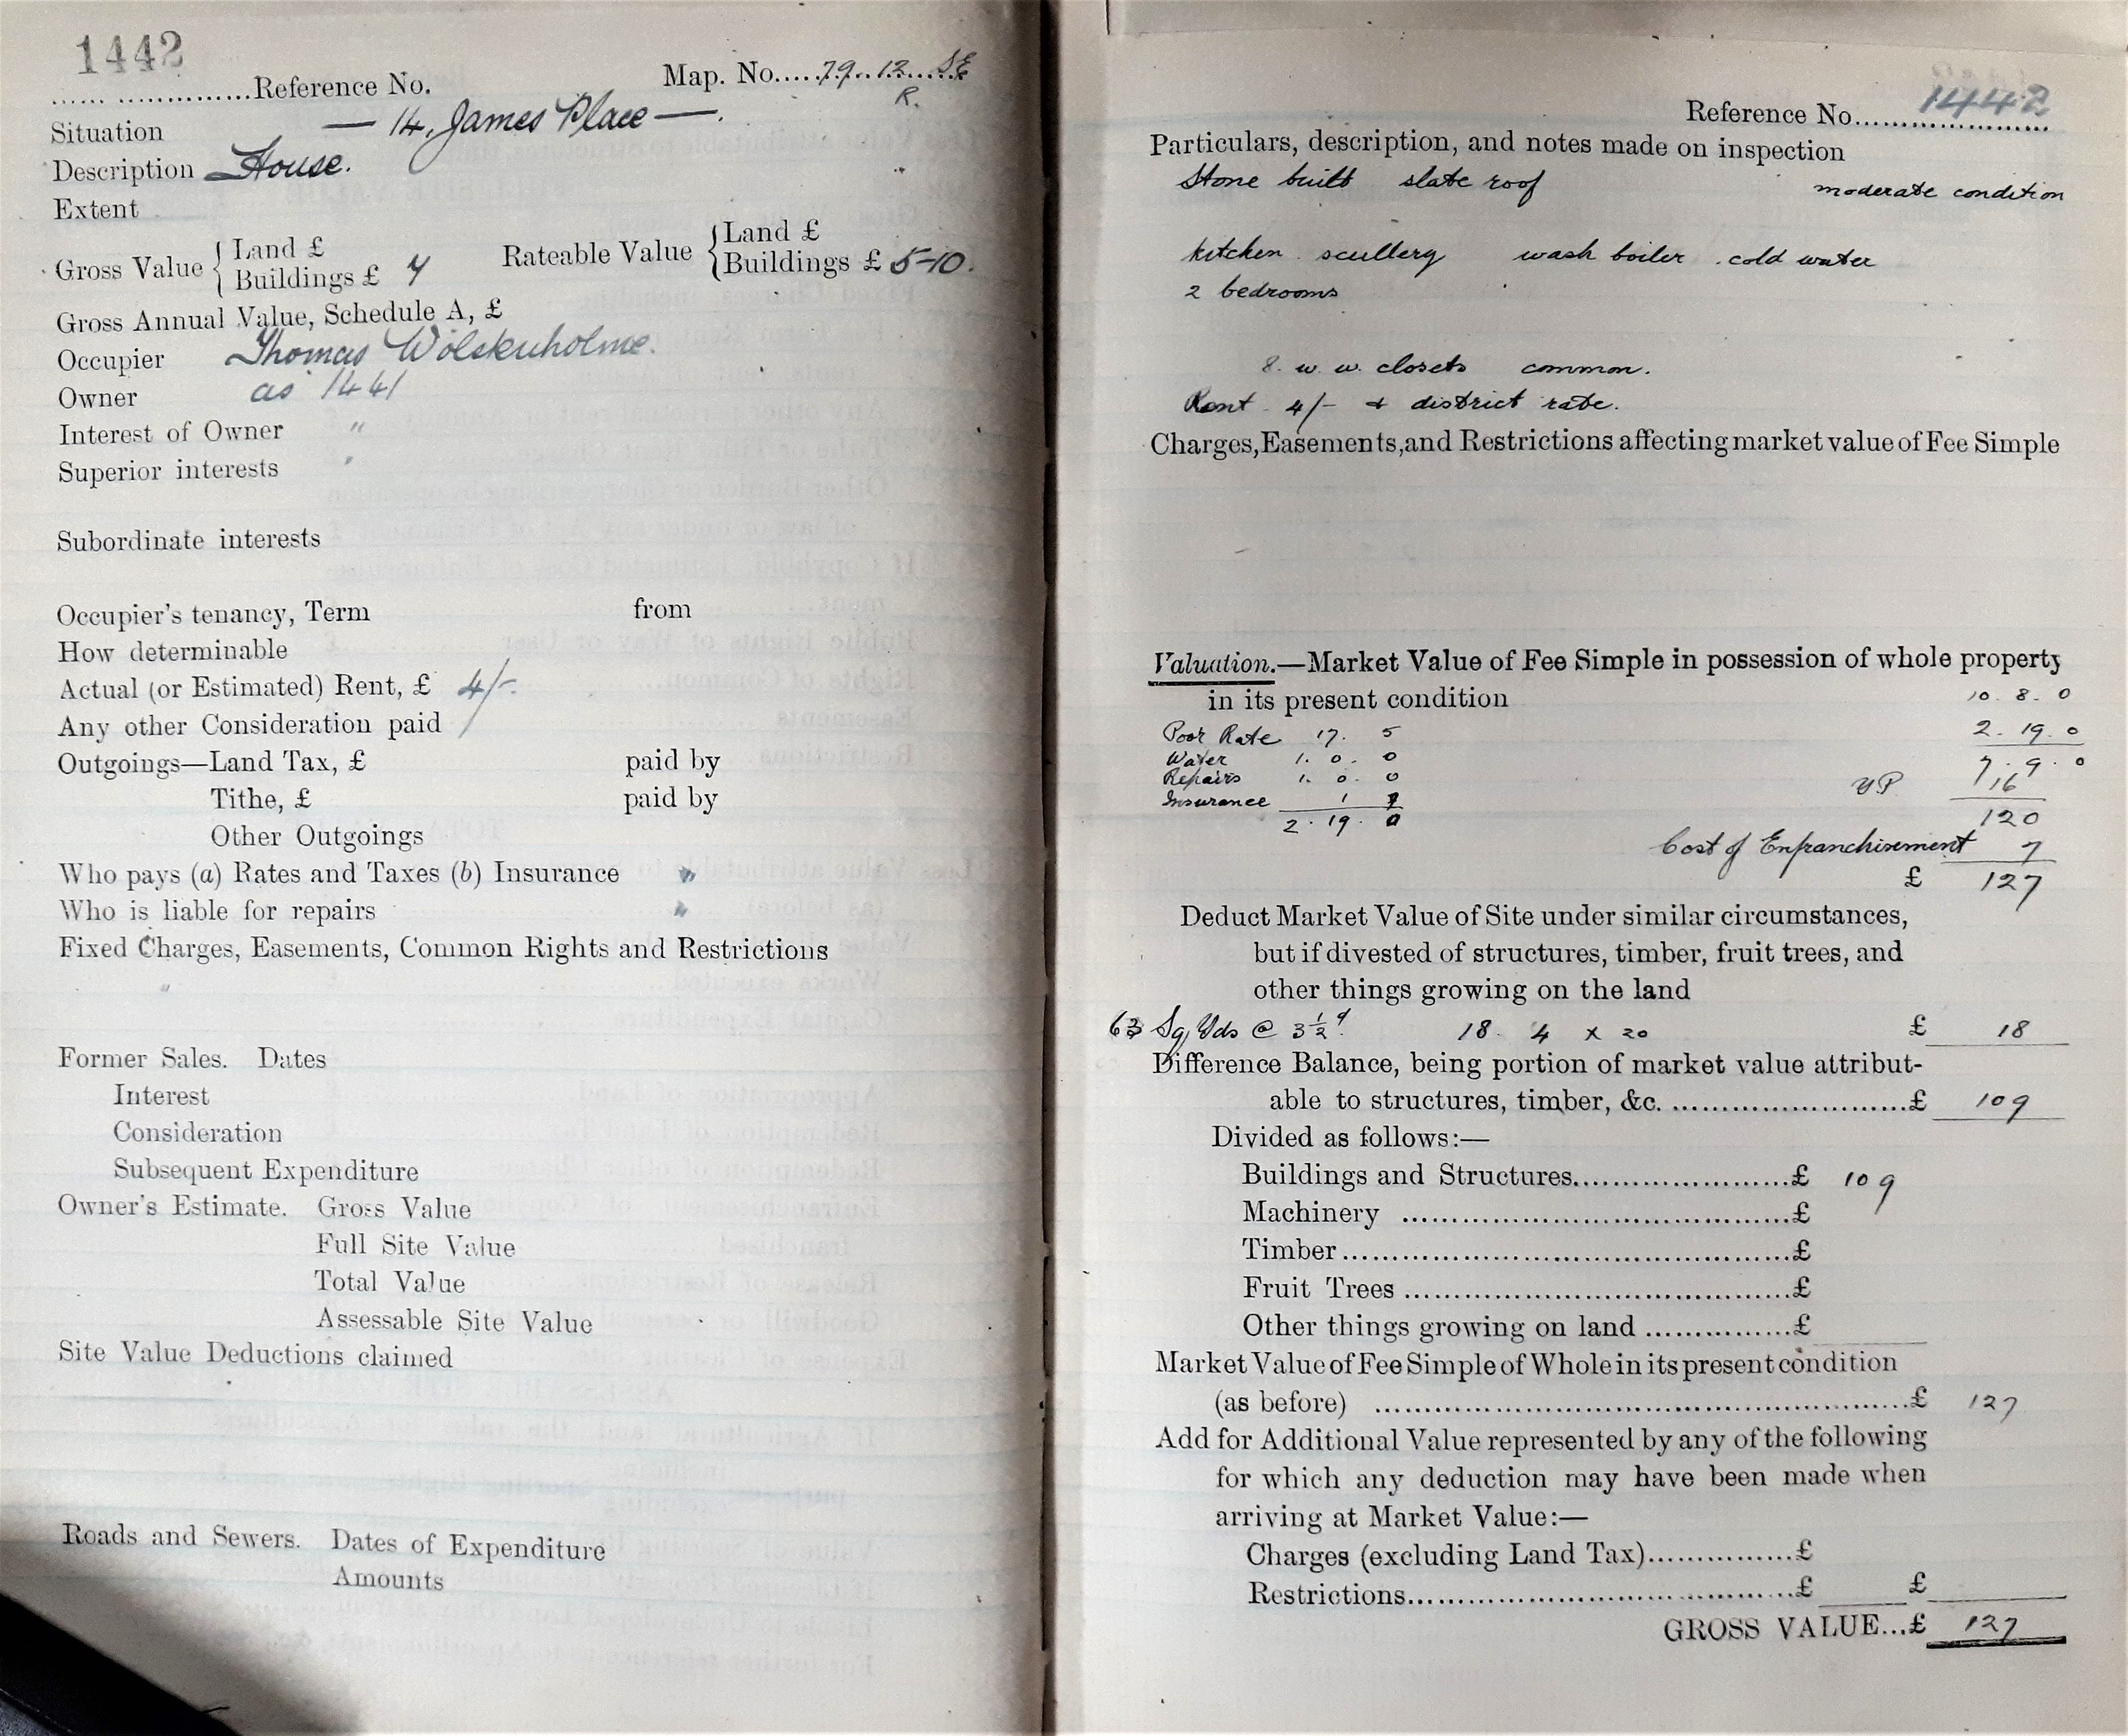 1442
...... ...............Reference No. Map. No.....79..12..SE
R.
Situation — 14, James Place —.
Description House.
Extent
Gross Value { Land £ Rateable Value { Land £
Buildings £ 7 Buildings £ 5-10.
Gross Annual Value, Schedule A, £
Occupier Thomas Wolskuholme.
Owner as 1441
Interest of Owner "
Superior interests "
Subordinate interests
Occupier's tenancy, Term from
How determinable
Actual (or Estimated) Rent, £ 4/-.
Any other Consideration paid
Outgoings—Land Tax, £ paid by
Tithe, £ paid by
Other Outgoings
Who pays (a) Rates and Taxes (b) Insurance "
Who is liable for repairs "
Fixed Charges, Easements, Common Rights and Restrictions
"
Former Sales. Dates
Interest
Consideration
Subsequent Expenditure
Owner's Estimate. Gross Value
Full Site Value
Total Value
Assessable Site Value
Site Value Deductions claimed
Roads and Sewers. Dates of Expenditure
Amounts
Reference No. 1442
Particulars, description, and notes made on inspection
Stone built slate roof moderate condition
kitchen scullery wash boiler . cold water
2 bedrooms
8. w. w. closets common.
Rent 4/- & district rate.
Charges, Easements, and Restrictions affecting market value of Fee Simple
Valuation.—Market Value of Fee Simple in possession of whole property
in its present condition 10. 8. 0
Poor Rate 17. 5 2. 19. 0
Water 1. 0. 0 7. 9. 0
Repairs 1. 0. 0 YP 16
Insurance 1 7
2. 19. 0 120
Cost of Enfranchisement 7
£ 127
Deduct Market Value of Site under similar circumstances,
but if divested of structures, timber, fruit trees, and
other things growing on the land
63 Sq Yds @ 3½d. 18. 4 x 20 £ 18
Difference Balance, being portion of market value attribut-
able to structures, timber, &c. ........................£ 109
Divided as follows:—
Buildings and Structures......................£ 109
Machinery ......................................£
Timber............................................£
Fruit Trees .....................................£
Other things growing on land ...............£
Market Value of Fee Simple of Whole in its present condition
(as before) ....................................................£ 127
Add for Additional Value represented by any of the following
for which any deduction may have been made when
arriving at Market Value:—
Charges (excluding Land Tax)...............£
Restrictions.....................................£ £
GROSS VALUE...£ 127